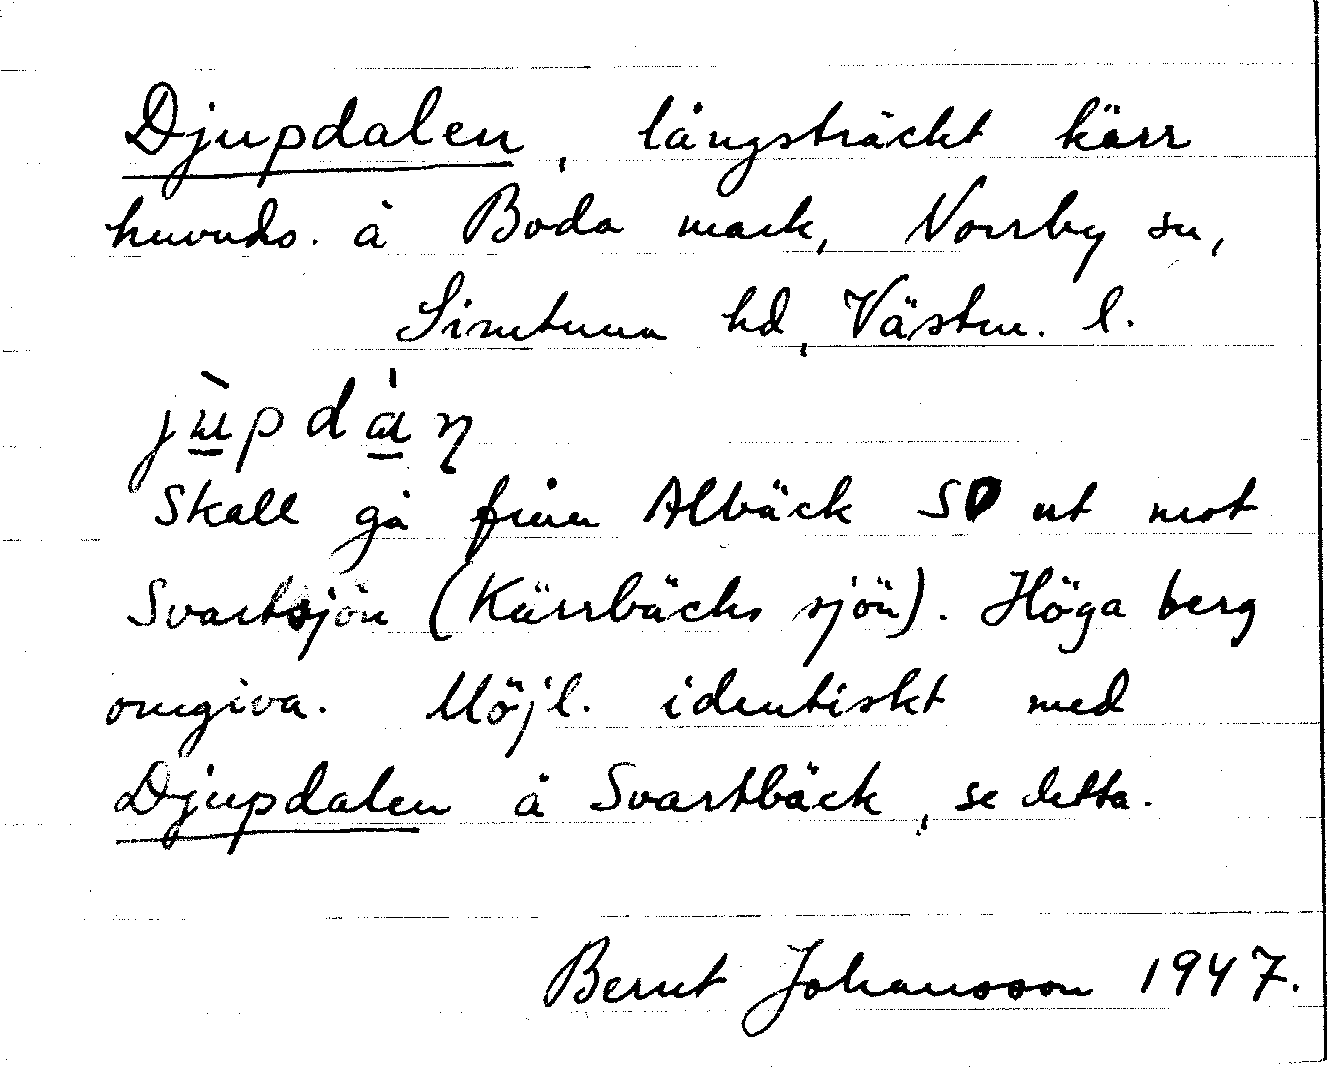 Djupdalen, långsträckt kärr
huvuds. å Boda mark, Norrby sn,
Simtuna hd, Västm. l.
jùpdáṇ
Skall gå från Albäck SO ut mot
Svartsjön (Kärrbäcks sjön). Höga berg
omgiva. Möjl. identiskt med
Djupdalen å Svartbäck, se detta.
Bernt Johansson 1947.